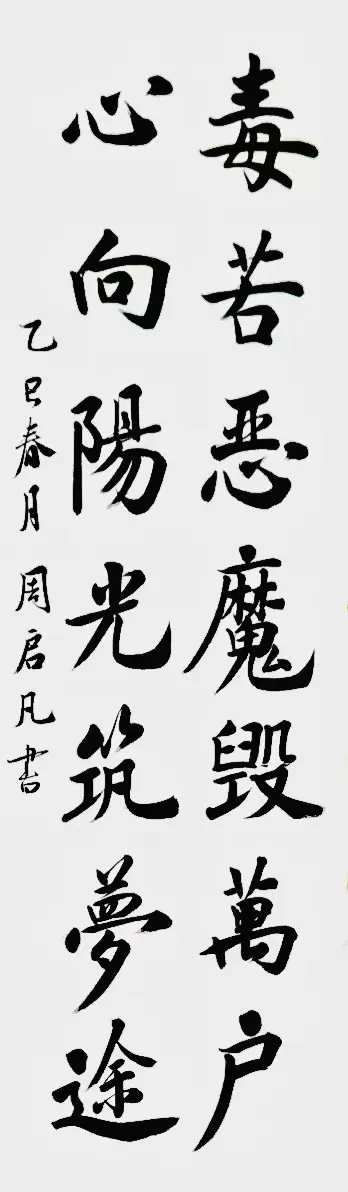 毒若恶魔毁萬户
心向陽光筑夢途
乙巳春月 周启凡书